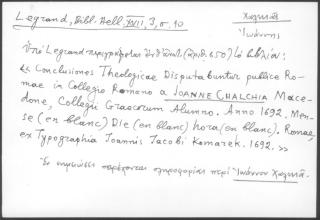 Legrand, Bibl. Hell. XVII, 3, σ. 10
Χαλκιᾶ
Ἰωάννης
Ὑπὸ Legrand περιγράφεται (ἀριθ. 650) τὸ βιβλίον:
« Conclusiones Theologicae Disputabuntur publice Ro-
mae in Collegio Romano a JOANNE CHALCHIA Mace-
done, Collegii Graecorum Alumno. Anno 1692. Men-
se (en blanc) Die (en blanc) hora (en blanc). Romae,
ex Typographia Joannis Jacobi Komarek. 1692. »
Ἐν σημειώσει παρέχονται πληροφορίαι περὶ Ἰωάννου Χαλκιᾶ.